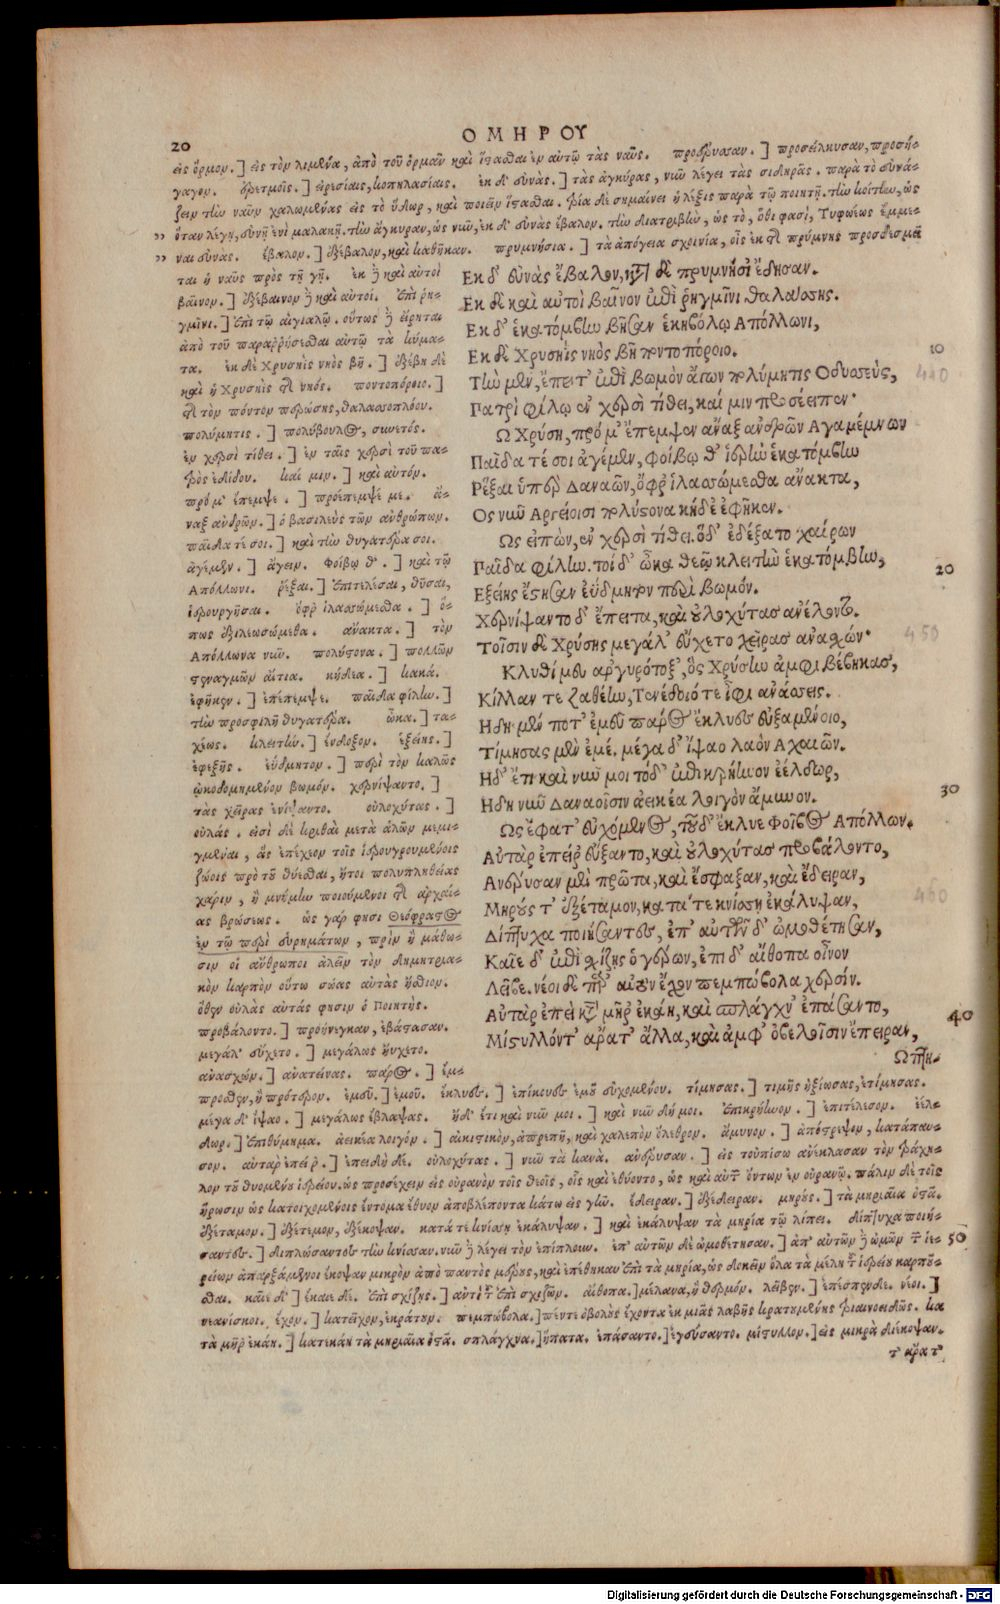 20
ΟΜΗΡΟΥ
εἰς ὅρμον.] εἰς τὸν λιμένα, ἀπὸ τοῦ ὁρμᾶν καὶ ἵστασθαι ἐν αὐτῷ τὰς ναῦς. προέρυσσαν.] προσείλκυσαν, προσή-
γαγον. ἐρετμοῖς.] εἰρεσίαις, κωπηλασίαις. ἐκ δ' εὐνὰς.] τὰς ἀγκύρας, νῦν λέγει τὰς σιδηρᾶς. παρὰ τὸ εὐνά-
ζειν τὴν ναῦν χαλωμένας εἰς τὸ ὕδωρ, καὶ ποιεῖν ἵστασθαι. τρία δὲ σημαίνει ἡ λέξις παρὰ τῷ ποιητῇ. τὴν κοίτην, ὡς
ὅταν λέγῃ, εὐνῇ ἐνὶ μαλακῇ. τὴν ἄγκυραν, ὡς νῦν, ἐκ δ' εὐνὰς ἔβαλον. τὴν διατριβὴν, ὡς τὸ, ὅθι φασὶ, Τυφωέως ἔμμε-
ναι εὐνάς. ἔβαλον.] ἐξέβαλον, καὶ καθῆκαν. πρυμνήσια.] τὰ ἀπόγεια σχοινία, οἷς ἐκ τῆς πρύμνης προσδεσμεῖ
ται ἡ ναῦς πρὸς τῇ γῇ. ἐκ δὲ καὶ αὐτοὶ
βαῖνον.] ἐξέβαινον δὲ καὶ αὐτοί. ἐπὶ ῥη-
γμῖνι.] ἐπὶ τῷ αἰγιαλῷ. οὕτως δὲ εἴρηται
ἀπὸ τοῦ παραῤῥήσεσθαι αὐτῷ τὰ κύμα-
τα. ἐκ δὲ Χρυσηῒς νηὸς βῆ.] ἐξέβη δὲ
καὶ ἡ Χρυσηῒς τῆς νηός. ποντοπόροιο.]
τῆς τὸν πόντον περώσης, θαλασσοπλόου.
πολύμητις.] πολύβουλος, συνετός.
ἐν χερσὶ τίθει.] ἐν ταῖς χερσὶ τοῦ πα-
τρὸς ἐδίδου. καί μιν.] καὶ αὐτόν.
πρό μ' ἔπεμψε.] προέπεμψέ με. ἄ-
ναξ ἀνδρῶν.] ὁ βασιλεὺς τῶν ἀνθρώπων.
παῖδα τέ σοι.] καὶ τὴν θυγατέρα σοι.
ἀγέμεν.] ἄγειν. Φοίβῳ θ'.] καὶ τῷ
Ἀπόλλωνι. ῥέξαι.] ἐπιτελέσαι, θῦσαι,
ἱερουργῆσαι. ὄφρ' ἱλασσώμεσθα.] ὅ-
πως ἐξιλεωσώμεθα. ἄνακτα.] τὸν
Ἀπόλλωνα νῦν. πολύστονα.] πολλῶν
στεναγμῶν αἴτια. κήδεα.] κακά.
ἐφῆκεν.] ἐπέπεμψε. παῖδα φίλην.]
τὴν προσφιλῆ θυγατέρα. ὦκα.] τα-
χέως. κλειτὴν.] ἔνδοξον. ἑξείης.]
ἐφεξῆς. ἐΰδμητον.] περὶ τὸν καλῶς
ᾠκοδομημένον βωμόν. χερνίψαντο.]
τὰς χεῖρας ἐνίψαντο. οὐλοχύτας.]
οὐλάς. εἰσὶ δὲ κριθαὶ μετὰ ἁλῶν μεμι-
γμέναι, ἃς ἐπέχεον τοῖς ἱερουργουμένοις
ζώοις πρὸ τοῦ θύεσθαι, ἤτοι πολυπληθείας
χάριν, ἢ μνήμην ποιούμενοι τῆς ἀρχαί-
ας βρώσεως. ὡς γάρ φησι Θεόφραστος
ἐν τῷ περὶ εὑρημάτων, πρὶν ἢ μάθω-
σιν οἱ ἄνθρωποι ἀλεῖν τὸν δημητρια-
κὸν καρπὸν οὕτω σώας αὐτὰς ἤσθιον.
ὅθεν οὐλὰς αὐτάς φησιν ὁ Ποιητής.
προβάλοντο.] προήνεγκαν, ἐβάστασαν.
μεγάλ' εὔχετο.] μεγάλως ηὔχετο.
ἀνασχών.] ἀνατείνας. πάρος.] ἔμ-
Εκ δ' εὐνὰς ἔβαλον, κατὰ δὲ πρυμνήσι' ἔδησαν.
Εκ δὲ καὶ αὐτοὶ βαῖνον ἐπὶ ῥηγμῖνι θαλάσσης.
Εκ δ' ἑκατόμβην βῆσαν ἑκηβόλῳ Ἀπόλλωνι,
Εκ δὲ Χρυσηῒς νηὸς βῆ ποντοπόροιο.
10
Τὴν μὲν, ἔπειτ' ἐπὶ βωμὸν ἄγων πολύμητις Οδυσσεὺς,
440
Πατρὶ φίλῳ ἐν χερσὶ τίθει, καί μιν προσέειπεν·
Ω Χρύση, πρό μ' ἔπεμψεν ἄναξ ἀνδρῶν Αγαμέμνων
Παῖδά τέ σοι ἀγέμεν, Φοίβῳ θ' ἱερὴν ἑκατόμβην
Ρέξαι ὑπὲρ Δαναῶν, ὄφρ' ἱλασσώμεσθα ἄνακτα,
Ος νῦν Αργείοισι πολύστονα κήδε' ἐφῆκεν.
Ως εἰπὼν, ἐν χερσὶ τίθει. ὃ δ' ἐδέξατο χαίρων
Παῖδα φίλην. τοὶ δ' ὦκα θεῷ κλειτὴν ἑκατόμβην,
20
Εξείης ἔστησαν ἐΰδμητον περὶ βωμόν.
Χερνίψαντο δ' ἔπειτα, καὶ οὐλοχύτας ἀνέλοντο.
450
Τοῖσιν δὲ Χρύσης μεγάλ' εὔχετο χεῖρας ἀνασχών·
Κλῦθί μευ ἀργυρότοξ', ὃς Χρύσην ἀμφιβέβηκας,
Κίλλαν τε ζαθέην, Τενέδοιό τε ἶφι ἀνάσσεις.
Ηδη μέν ποτ' ἐμεῦ πάρος ἔκλυες εὐξαμένοιο,
Τίμησας μὲν ἐμὲ, μέγα δ' ἴψαο λαὸν Αχαιῶν.
Ηδ' ἔτι καὶ νῦν μοι τόδ' ἐπικρήηνον ἐέλδωρ,
30
Ηδη νῦν Δαναοῖσιν ἀεικέα λοιγὸν ἄμυνον.
Ως ἔφατ' εὐχόμενος, τοῦ δ' ἔκλυε Φοῖβος Απόλλων.
Αὐτὰρ ἐπεί ῥ' εὔξαντο, καὶ οὐλοχύτας προβάλοντο,
Αυέρυσαν μὲν πρῶτα, καὶ ἔσφαξαν, καὶ ἔδειραν,
460
Μηρούς τ' ἐξέταμον, κατά τε κνίσσῃ ἐκάλυψαν,
Δίπτυχα ποιήσαντες, ἐπ' αὐτῶν δ' ὠμοθέτησαν,
Καῖε δ' ἐπὶ σχίζης ὁ γέρων, ἐπὶ δ' αἴθοπα οἶνον
Λεῖβε. νέοι δὲ παρ' αὐτὸν ἔχον πεμπώβολα χερσίν.
Αὐτὰρ ἐπεὶ κατὰ μῆρ' ἐκάη, καὶ σπλάγχν' ἐπάσαντο,
40
Μίστυλλόν τ' ἄρα τ' ἄλλα, καὶ ἀμφ' ὀβελοῖσιν ἔπειραν,
Ωπτη-
προσθεν, ἢ πρότερον. ἐμεῦ.] ἐμοῦ. ἔκλυες.] ἐπήκουες ἐμοῦ εὐχομένου. τίμησας.] τιμῆς ἠξίωσας, ἐτίμησας.
μέγα δ' ἴψαο.] μεγάλως ἔβλαψας. ἠδ' ἔτι καὶ νῦν μοι.] καὶ νῦν δή μοι. ἐπικρήηνον.] ἐπιτέλεσον. ἐέλ-
δωρ.] ἐπιθύμημα. ἀεικέα λοιγόν.] αἰκιστικὸν, ἀπρεπῆ, καὶ χαλεπὸν ὄλεθρον. ἄμυνον.] ἀπόστρεψον, κατάπαυ-
σον. αὐτὰρ ἐπεί ῥ'.] ἐπειδὴ δέ. οὐλοχύτας.] νῦν τὰ κανᾶ. αυέρυσαν.] εἰς τοὐπίσω ἀνέκλασαν τὸν τράχη-
λον τοῦ θυομένου ἱερείου. ὡς προσέχειν εἰς οὐρανὸν τοῖς θεοῖς, οἷς καὶ ἐθύοντο, ὡς καὶ αὐτῶν ὄντων ἐν οὐρανῷ. πάλιν δὲ τοῖς
ἥρωσιν ὡς κατοιχομένοις ἔντομα ἔθυον ἀποβλέποντα κάτω εἰς γῆν. ἔδειραν.] ἐξέδειραν. μηρούς.] τὰ μηριαῖα ὀστᾶ.
ἐξέταμον.] ἐξέτεμον, ἐξέκοψαν. κατά τε κνίσῃ ἐκάλυψαν.] καὶ ἐκάλυψαν τὰ μηρία τῷ λίπει. δίπτυχα ποιή-
50
σαντες.] διπλώσαντες τὴν κνίσσαν. νῦν δὲ λέγει τὸν ἐπίπλουν. ἐπ' αὐτῶν δὲ ὠμοθέτησαν.] ἀπ' αὐτῶν δὲ ὠμῶν τῶν ἱε-
ρείων ἀπαρξάμενοι ἔκοψαν μικρὸν ἀπὸ παντὸς μέρους, καὶ ἐπέθηκαν ἐπὶ τὰ μηρία, ὡς δοκεῖν ὅλα τὰ μέλη τοῦ ἱερείου καρποῦ-
σθαι. καῖε δ'] ἔκαιε δέ. ἐπὶ σχίζης.] ἀντὶ τοῦ ἐπὶ σχιζῶν. αἴθοπα.] μέλανα, ἢ θερμόν. λεῖβεν.] ἐπέσπενδε. νέοι.]
νεανίσκοι. ἔχον.] κατεῖχον, ἐκράτουν. πεμπώβολα.] πέντε ὀβολοὺς ἔχοντα ἐκ μιᾶς λαβῆς κρατουμένης τριαινοειδῶς. κα
τὰ μῆρ' ἐκάη.] κατεκάη τὰ μηριαῖα ὀστᾶ. σπλάγχνα.] ἥπατα. ἐπάσαντο.] ἐγεύσαντο. μίστυλλον.] εἰς μικρὰ διέκοψαν.
τ' ἄρα τ'
Digitalisierung gefördert durch die Deutsche Forschungsgemeinschaft - DFG